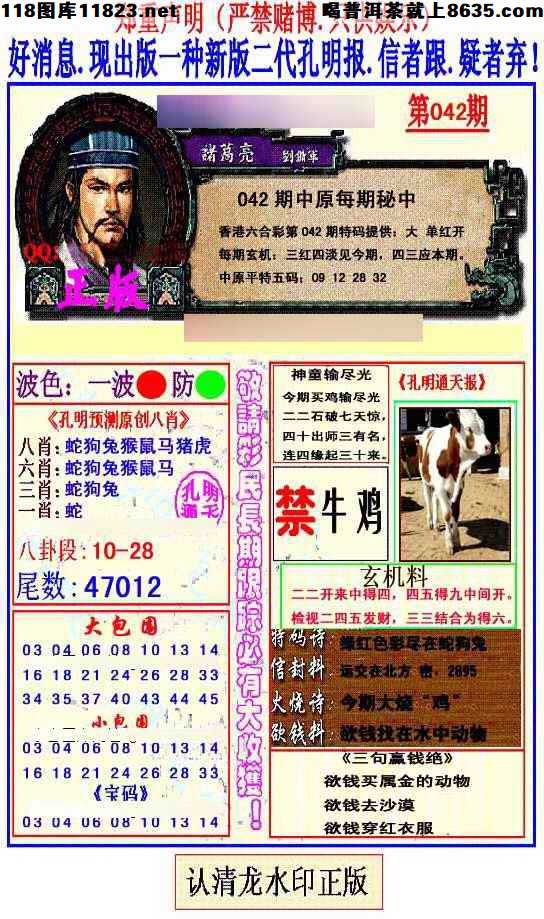 118图库11823.net
喝普洱茶就上8635.com
郑重声明（严禁赌博.只供娱乐）
好消息.现出版一种新版二代孔明报.信者跟.疑者弃!
第042期
諸葛亮
042期中原每期秘中
香港六合彩第042期特码提供：大 单红开
每期玄机：三红四淡见今期，四三应本期。
中原平特五码：09 12 28 32
QQ:
正版
波色：一波 防
《孔明预测原创八肖》
八肖：蛇狗兔猴鼠马猪虎
六肖：蛇狗兔猴鼠马
三肖：蛇狗兔
一肖：蛇
孔明
通天
八卦段：10-28
尾数：47012
大包围
03 04 06 08 10 13 14
16 18 21 24 26 28 33
34 35 37 40 43 44 45
小包围
03 04 06 08 10 13 14
16 18 21 24 26 28 33
《宝码》
03 04 06 08 10 13 14
敬請彩民長期跟踪必有大收獲！
神童输尽光
今期买鸡输尽光
二二石破七天惊，
四十出师三有名，
连四缘起三十来。
《孔明通天报》
禁 牛鸡
玄机料
二二开来中得四，四五得九中间开。
检视二四五发财，三三结合为得六。
特码诗：绿红色彩尽在蛇狗兔
信封料：运交在北方 密，2895
火烧诗：今期大烧“鸡”
欲钱料：欲钱找在水中动物
《三句赢钱绝》
欲钱买属金的动物
欲钱去沙漠
欲钱穿红衣服
认清龙水印正版